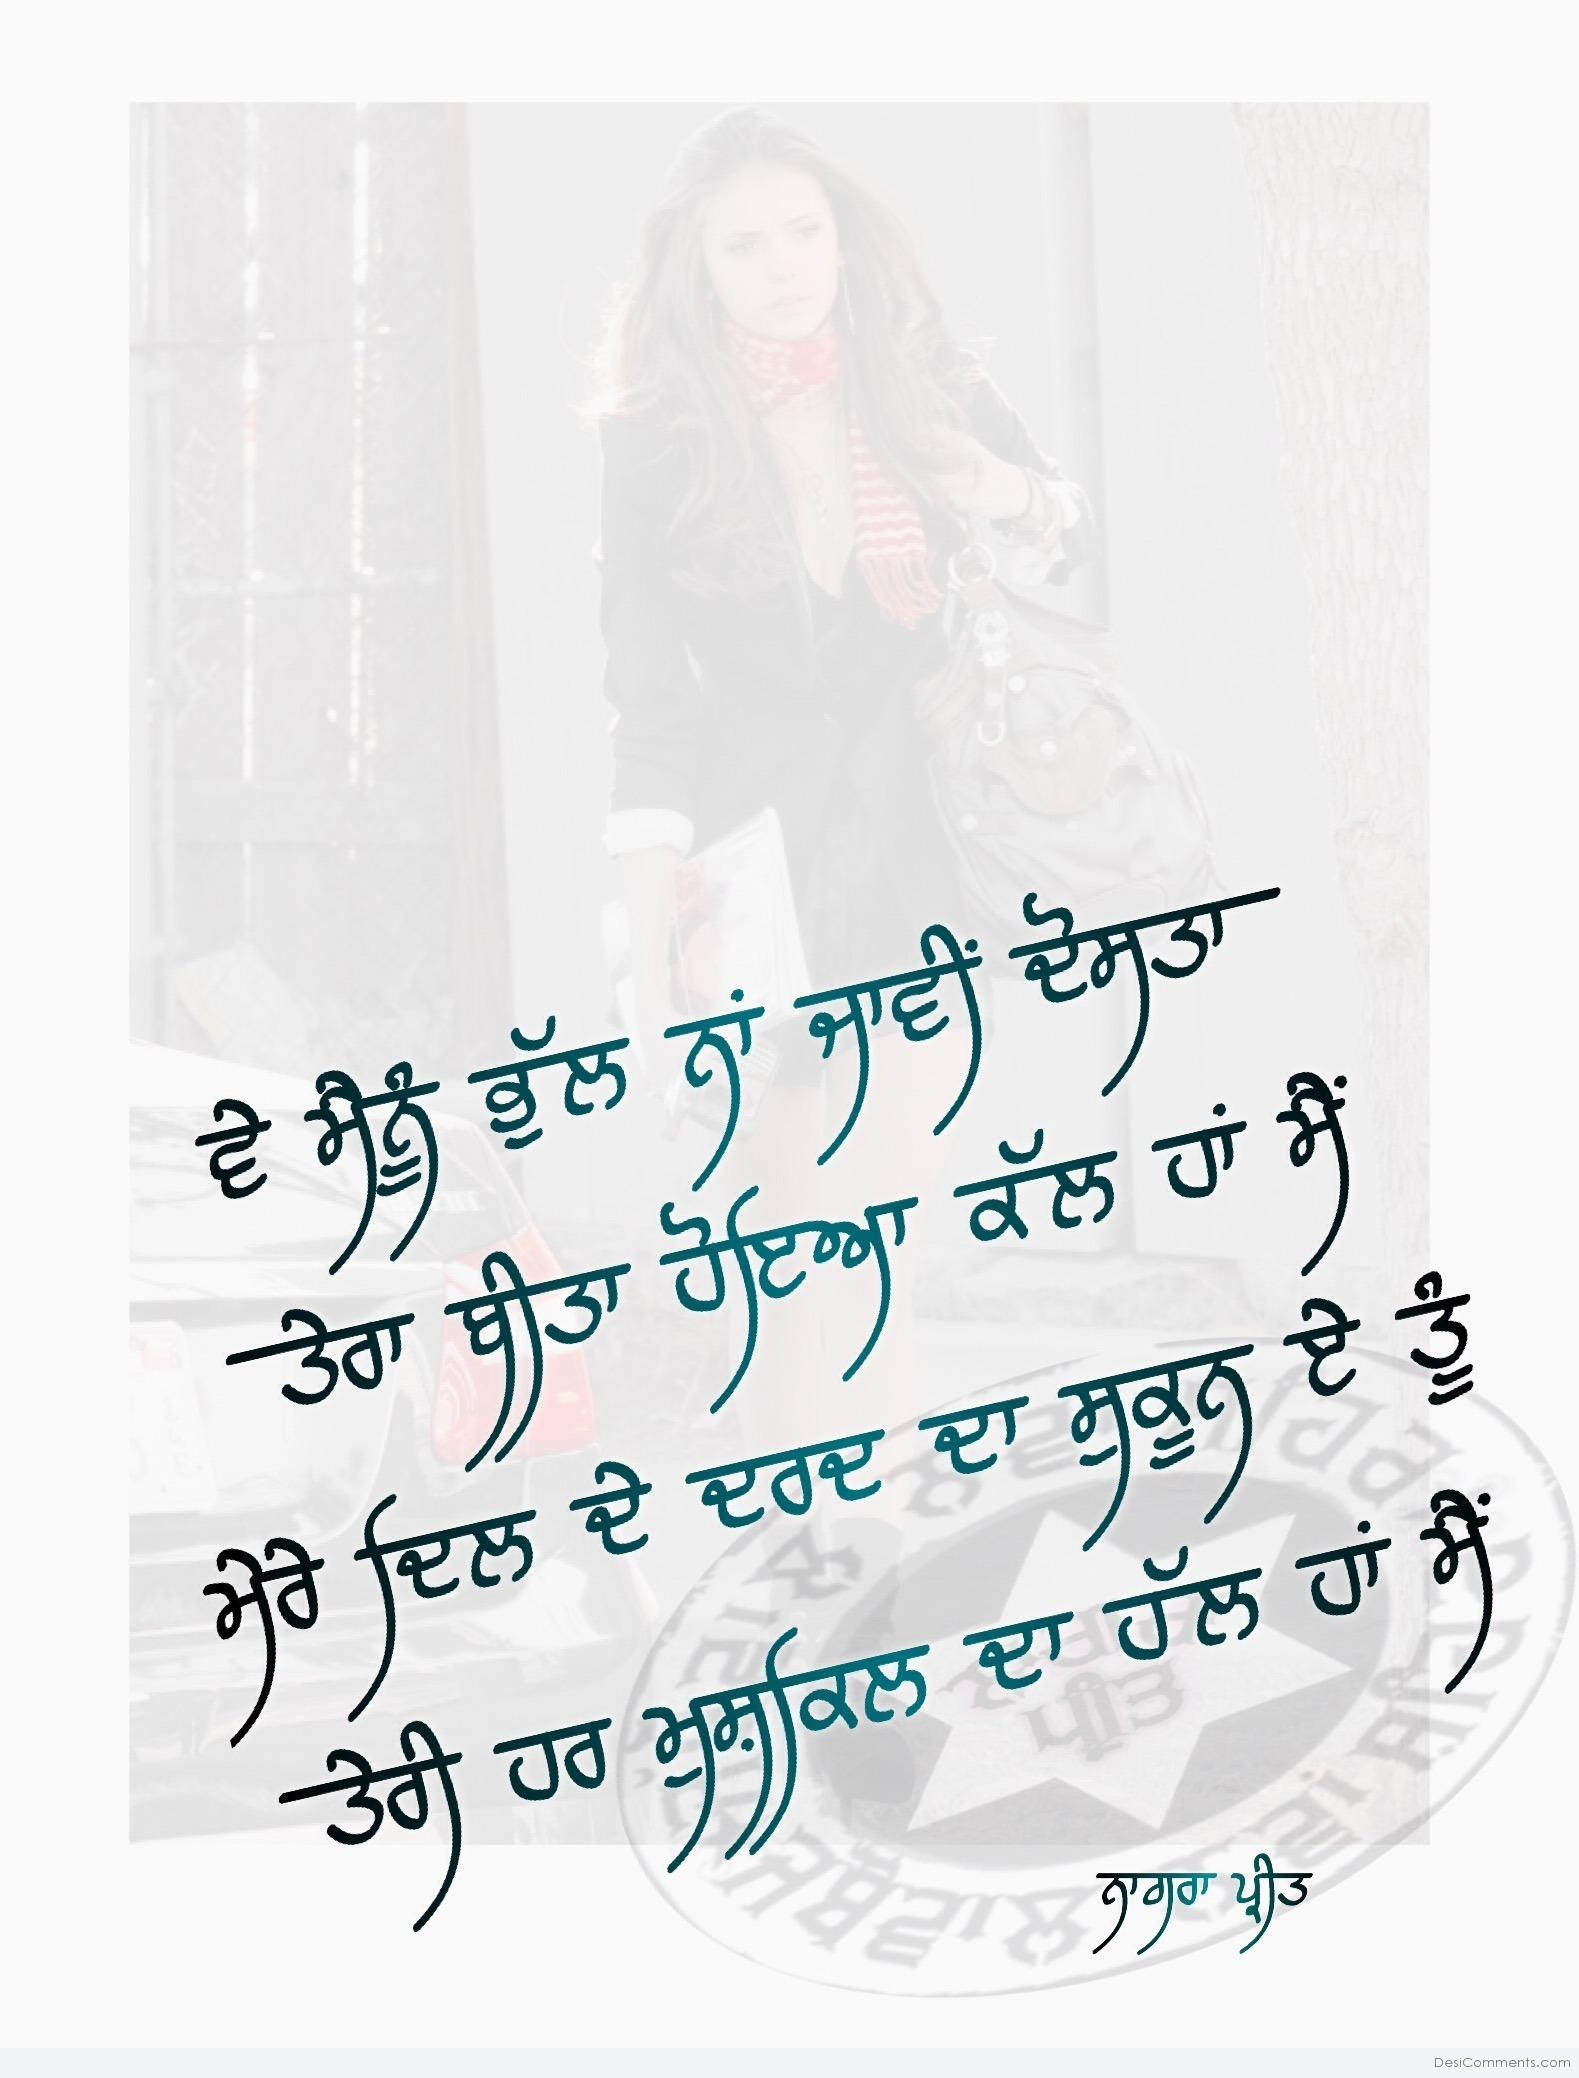 ਵੇ ਮੈਨੂੰ ਭੁੱਲ ਨਾਂ ਜਾਵੀਂ ਦੋਸਤਾ
ਤੇਰਾ ਬੀਤਾ ਹੋਇਆ ਕੱਲ ਹਾਂ ਮੈਂ
ਮੇਰੇ ਦਿਲ ਦੇ ਦਰਦ ਦਾ ਸੁਕੂਨ ਏ ਤੂੰ
ਤੇਰੀ ਹਰ ਮੁਸ਼ਕਿਲ ਦਾ ਹੱਲ ਹਾਂ ਮੈਂ
ਨਾਗਰਾ ਪ੍ਰੀਤ
ਪ੍ਰੀਤ
DesiComments.com